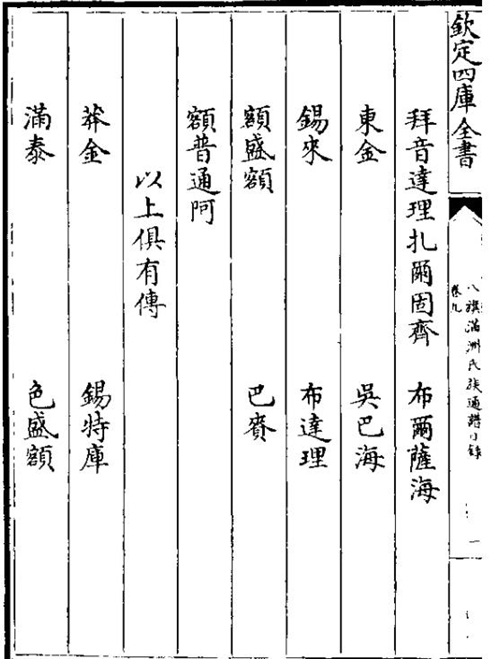 欽定四庫全書
八旗滿洲氏族通譜目錄
卷九
一
拜音達理扎爾固齊 布爾薩海
東金 吳巴海
錫來 布達理
額盛額 巴賚
額普通阿
以上俱有傳
莽金 錫特庫
滿泰 色盛額